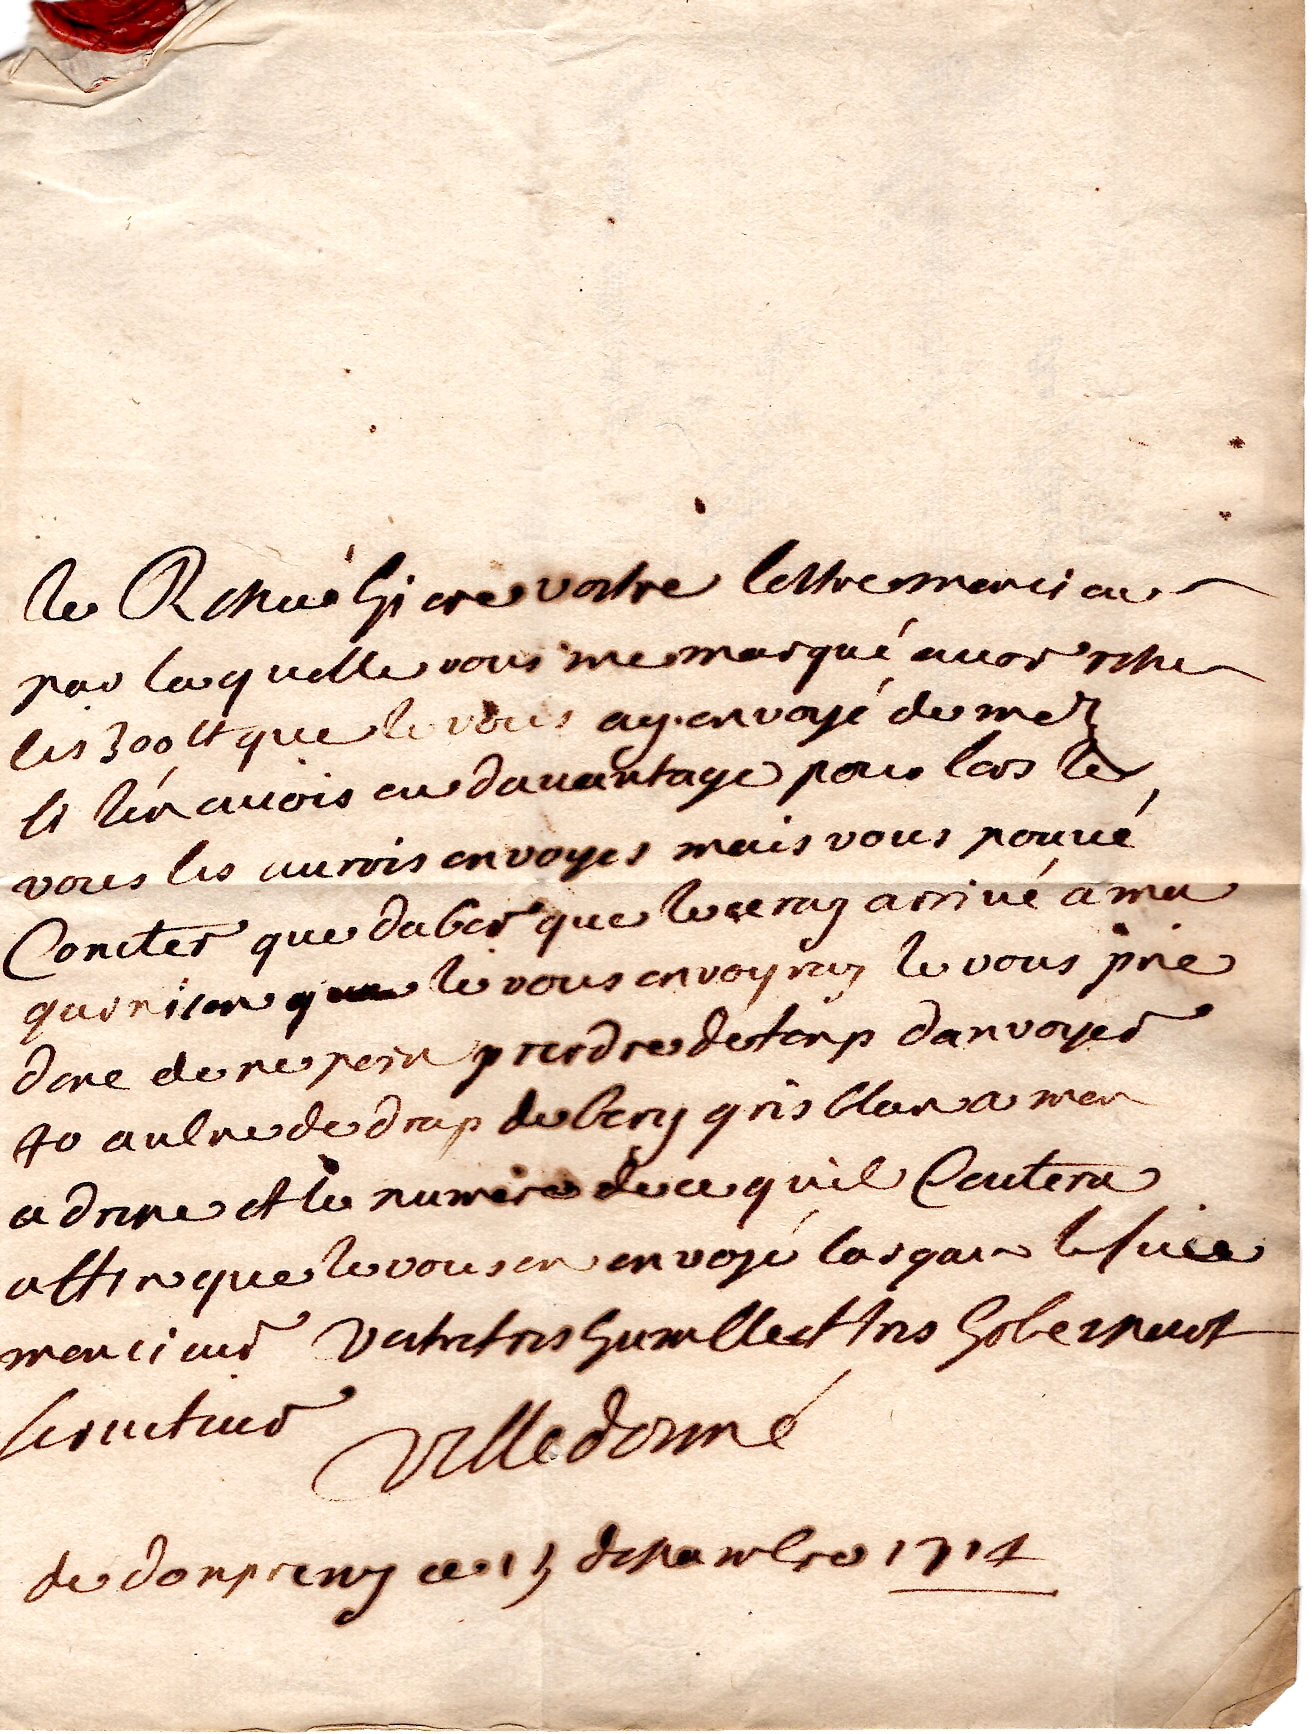 Je Reseue hi ere vostre lettre monsieur
par la quelle vous me marqué auoir resu
les 300 lt que Je vous ay envoyé de metz
si Jén auois eu dauantage pour lors Je
vous les aurois envoyes mais vous pouué
Conter que dabor que Je seray arriué a ma
guarnison Je vous envoyray Je vous prie
donc de ne poin perdre de temp danvoyer
40 aulne de drap de bery gris blan a mon
adrese et le numero de ce quil Coutera
affin que Je vous en envoyé largan Je suis
monsieur Vostre tres humble et tres hobeisant
seruiteur Villedonné
de donpremy ce 15 desambre 1714